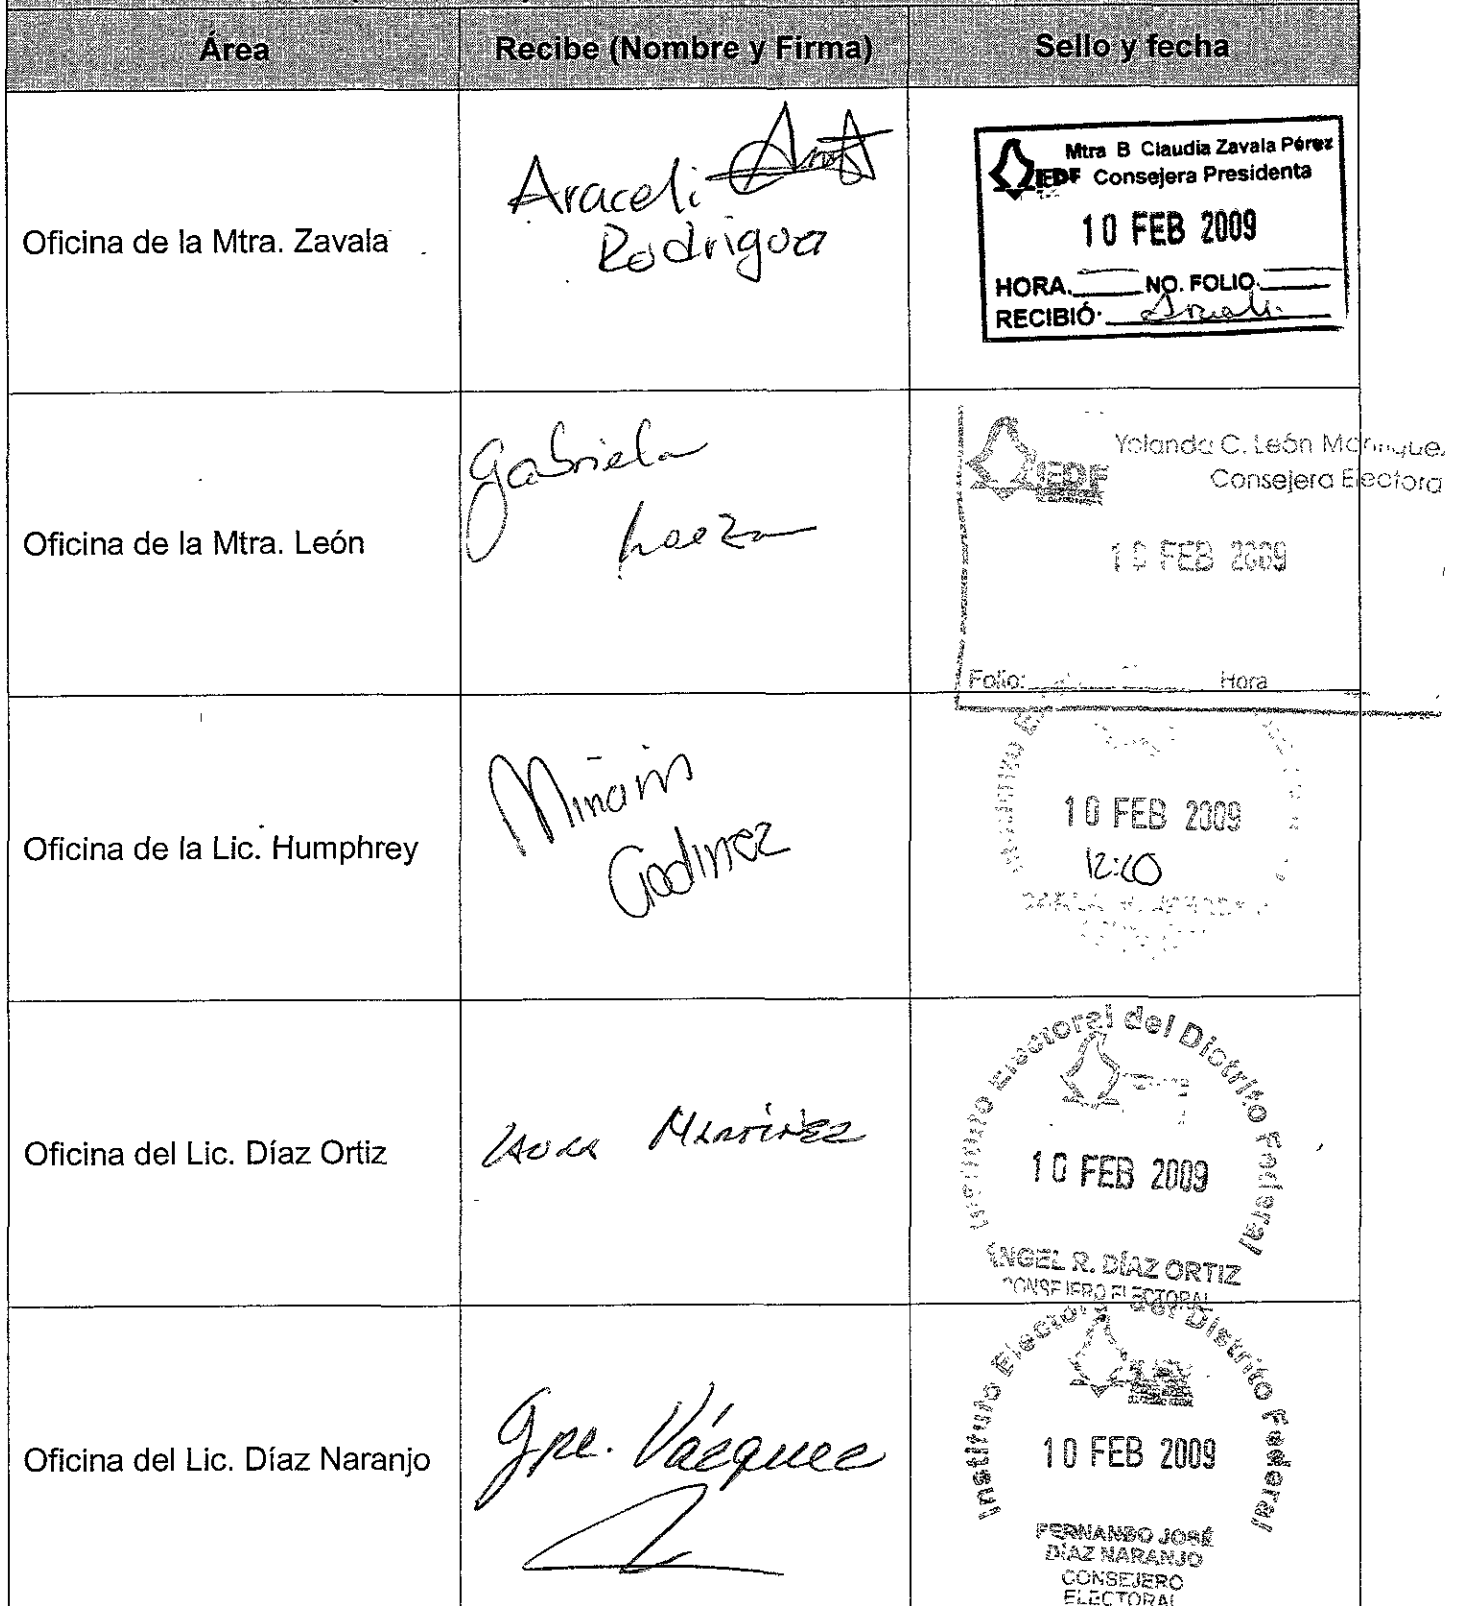 Área
Recibe (Nombre y Firma)
Sello y fecha
Oficina de la Mtra. Zavala
Araceli
Rodrigua
Mtra B Claudia Zavala Pérez
IEDF Consejera Presidenta
10 FEB 2009
HORA. NO. FOLIO.
RECIBIÓ. Araceli
Oficina de la Mtra. León
Gabriela
Loeza
IEDF
Yolanda C. León
Consejera Electora
10 FEB 2009
Folio: Hora
Oficina de la Lic. Humphrey
Godinez
10 FEB 2009
Oficina del Lic. Díaz Ortiz
Laura Martínez
Instituto Electoral del Distrito Federal
10 FEB 2009
ANGEL R. DÍAZ ORTIZ
CONSEJERO ELECTORAL
Oficina del Lic. Díaz Naranjo
Gpe. Vázquez
Instituto Electoral del Distrito Federal
10 FEB 2009
FERNANDO JOSÉ
DÍAZ NARANJO
CONSEJERO
ELECTORAL